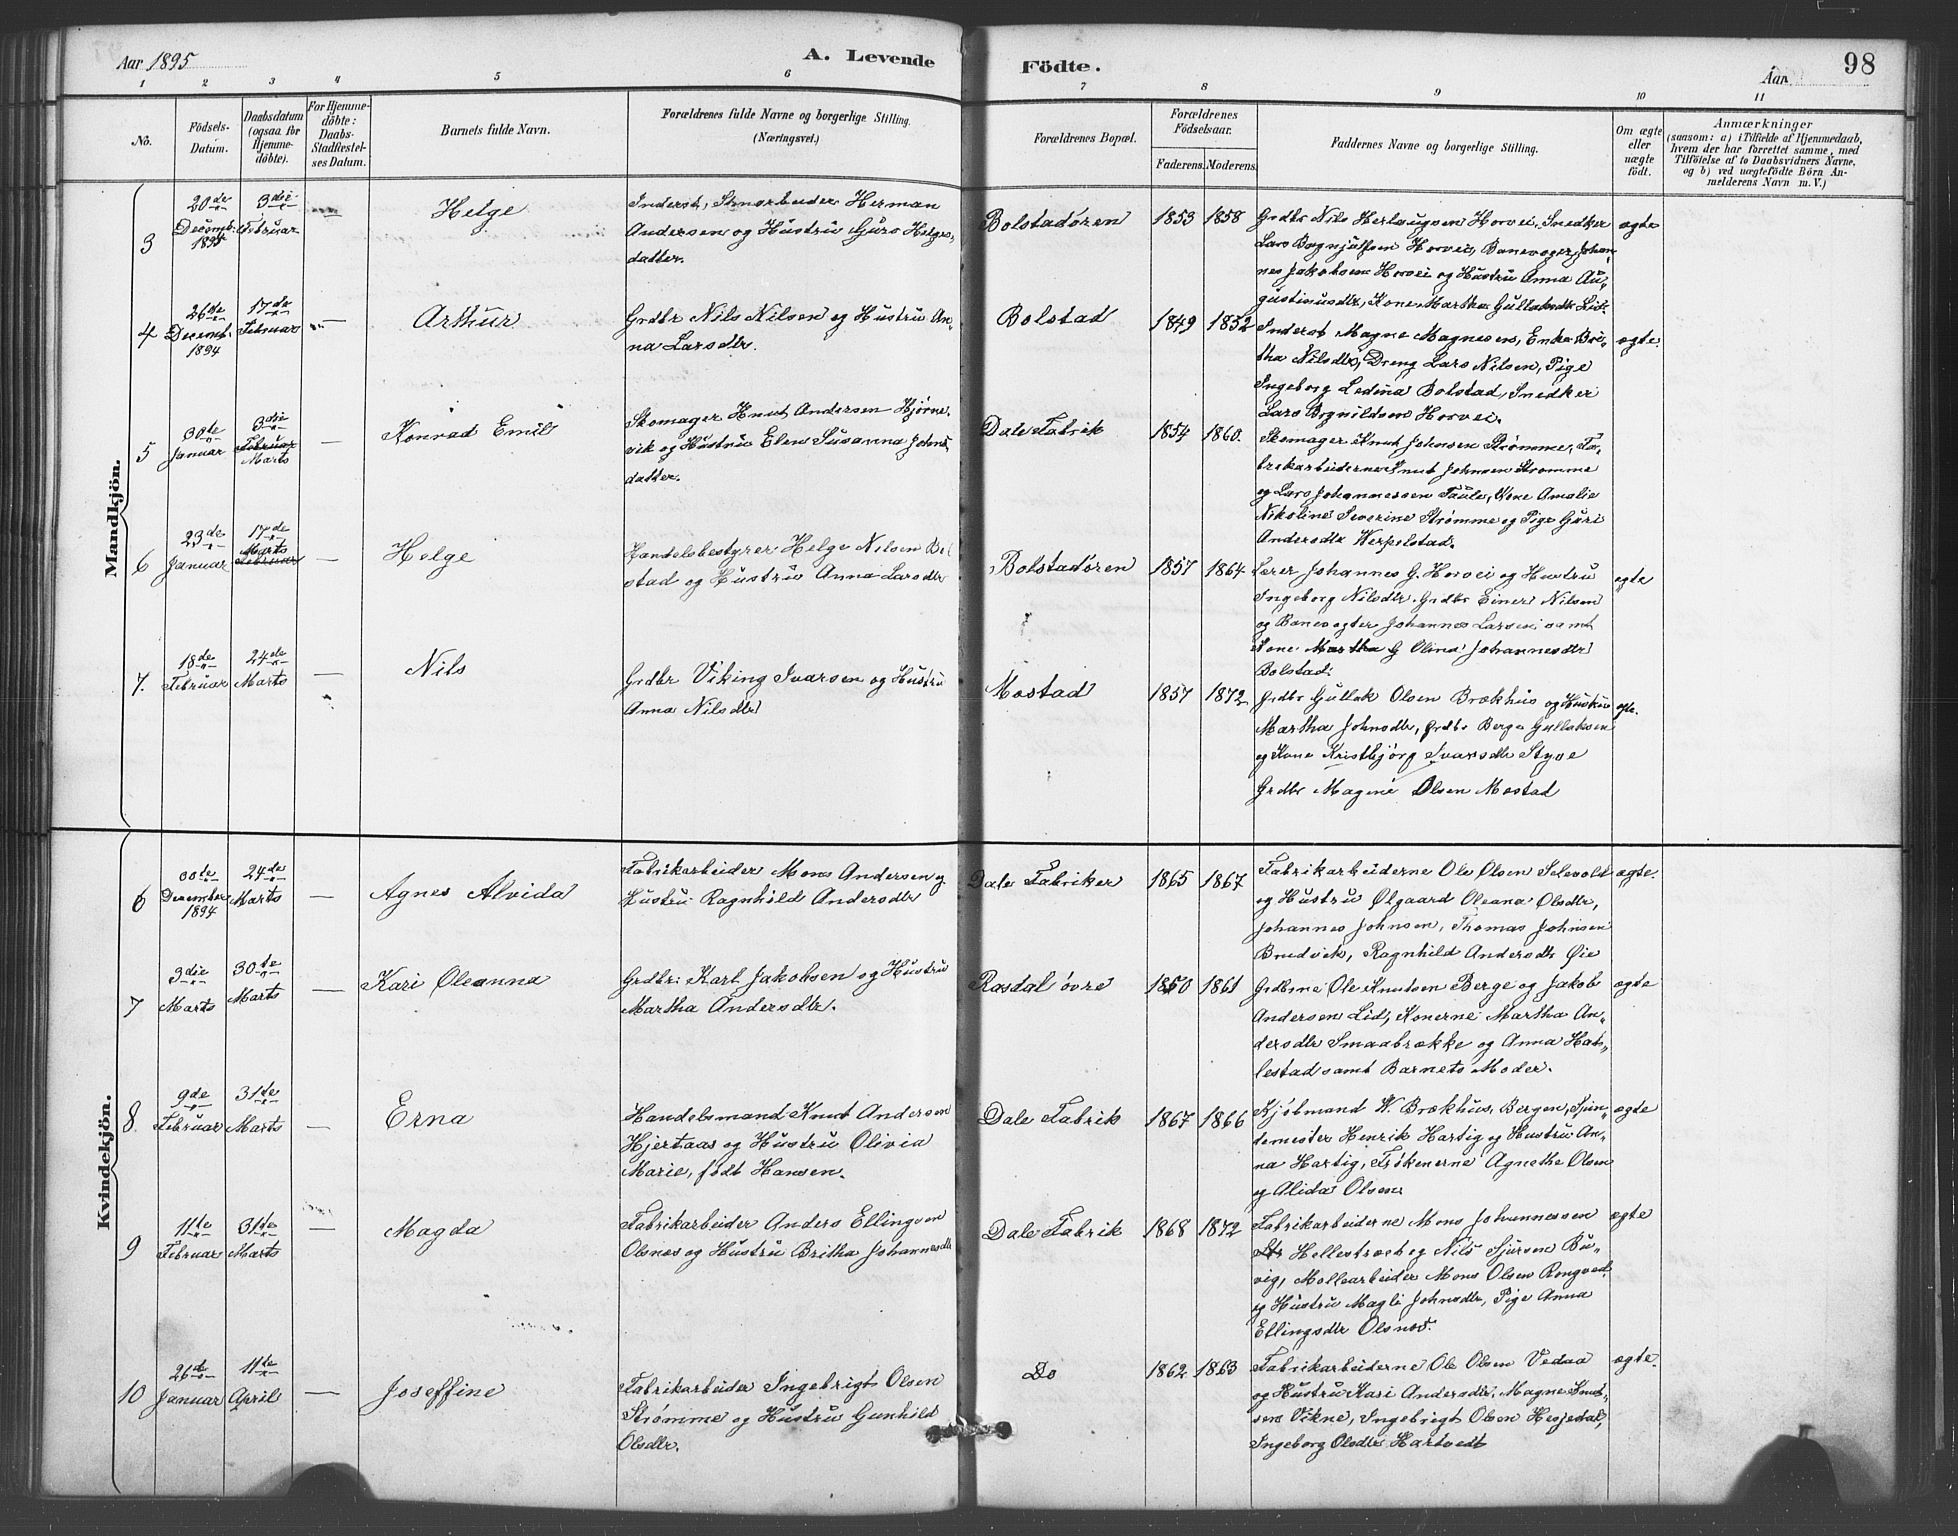 Aar 1895
A. Levende
Födte.
Aar
98
1 2 3 4 5 6 7 8 9 10 11
No.
Födsels-
Datum.
Daabsdatum
(ogsaa for
Hjemme-
döbte).
For Hjemme-
döbte:
Daabs-
Stadfæstel-
ses Datum.
Barnets fulde Navn.
Forældrenes fulde Navne og borgerlige Stilling.
(Næringsvei.)
Forældrenes Bopæl.
Forældrenes
Födselsaar.
Faderens. Moderens.
Faddernes Navne og borgerlige Stilling.
Om ægte
eller
uægte
födt.
Anmærkninger
(saasom: a) i Tilfælde af Hjemmedaab,
hvem der har forrettet samme, med
Tilföielse af to Daabsvidners Navne,
og b) ved uægtefödte Börn An-
melderens Navn m. V.)
Mandkjön.
3
20de
Decemb.
1894
3die
Februar
—
Helge
Inderst, Herman
Andersen og Hustru Guro Helges-
datter.
Bolstadøren
1853 1858
Grdbr Nils Herlaugsen Horvei, Snedker
Lars Horvei, Banevogter Johan-
nes Jakobsen Horvei og Hustru Anna Au-
gustinusdtr, Kone Martha Gullaksdtr Lid.
ægte
4
26de
Decemb.
1894
17de
Februar
—
Arthur
Grdbr Nils Nilsen og Hustru An-
na Larsdtr.
Bolstad
1849 1852
Inderst Magne Magnesen, Enke Bri-
tha Nilsdtr, Dreng Lars Nilsen, Pige
Ingeborg Bolstad, Snedker
Lars Horvei.
ægte.
5
30te
Januar
3die
Februar
Marts
—
Konrad Emil
Skomager Knut Andersen Hjørne-
vik og Hustru Elen Susanna Johns-
datter.
Dale Fabrik
1854 1860.
Skomager Knut Johnsen Strømme, Fa-
brikarbeiderne Knut Johnsen Strømme
og Lars Johannessen Taule, Kone Amalie
Nikoline Severine Strømme og Pige Guri
Andersdtr
6
23de
Januar
17de
Marts
Februar
—
Helge
Handelsbestyrer Helge Nilsen Bol-
stad og Hustru Anna Larsdtr
Bolstadøren
1857 1864
Lærer Johannes G. Horvei og Hustru
Ingeborg Nilsdtr. Grdbr Einer Nilsen
og Banevogter Johannes Larsen samt
Kone Martha G Olina Johannesdtr
Bolstad.
ægte
7.
18de
Februar
24de
Marts
—
Nils
Grdbr Viking Ivarsen og Hustru
Anna Nilsdtr
Mostad
1857 1872
Grdbr Gullak Olsen Brækhus og Hustru
Martha Johnsdtr, Grdbr Berge Gullaksen
og Kone Kristbjørg Ivarsdtr Styve
Grdbr Magne Olsen Mostad
ægte.
Kvindekjön.
6
30te
December
1894
24de
Marts
—
Agnes Alvida
Fabrikarbeider Mons Andersen og
Hustru Ragnhild Andersdtr
Dale Fabriker
1865 1867
Fabrikarbeiderne Ole Olsen Selevold
og Hustru Ølgaard Oleana Olsdtr,
Johannes Johnsen, Thomas Johnsen
Brudvik, Ragnhild Andersdtr Øie
ægte.
7
3die
Marts
30te
Marts
—
Kari Oleanna
Grdbr: Karl Jakobsen og Hustru
Martha Andersdtr.
Rasdal øvre
1850 1861
Grdbrne Ole Knutsen Berge og Jakob
Andersen Lid, Konerne Martha An-
dersdtr Smaabrække og Anna Hats-
lestad samt Barnets Moder.
ægte
8.
9de
Februar
31te
Marts
—
Erna
Handelsmand Knut Andersen
Hjertaas og Hustru Olivia
Marie, født Hansen.
Dale Fabrik
1867 1866
Kjøbmand W. Brækhus, Bergen, Spin-
demester Henrik Hartig og Hustru An-
na Hartig, Frøknerne Agnethe Olsen
og Alida Olsen
ægte
9
11te
Februar
31te
Marts
—
Magda
Fabrikarbeider Anders Ellingsen
Olsnæs og Hustru Britha Johannesdtr
Dale Fabrik
1868 1872
Fabrikarbeiderne Mons Johannessen
Hellestræt og Nils Sjursen Bu-
vig, Møllearbeider Mons Olsen Rongved
og Hustru Magli Johnsdtr, Pige Anna
Ellingsdtr Olsnæs.
ægte
10
26de
Januar
11te
April
—
Joseffine
Fabrikarbeider Ingebrigt Olsen
Strømme og Hustru Gunhild
Olsdtr.
Do
1862 1863
Fabrikarbeiderne Ole Olsen Vedaa
og Hustru Kari Andersdtr, Magne Knut-
sen Vikne, Ingebrigt Olsen Hesjedal,
Ingeborg Olsdtr Hartvedt
ægte.